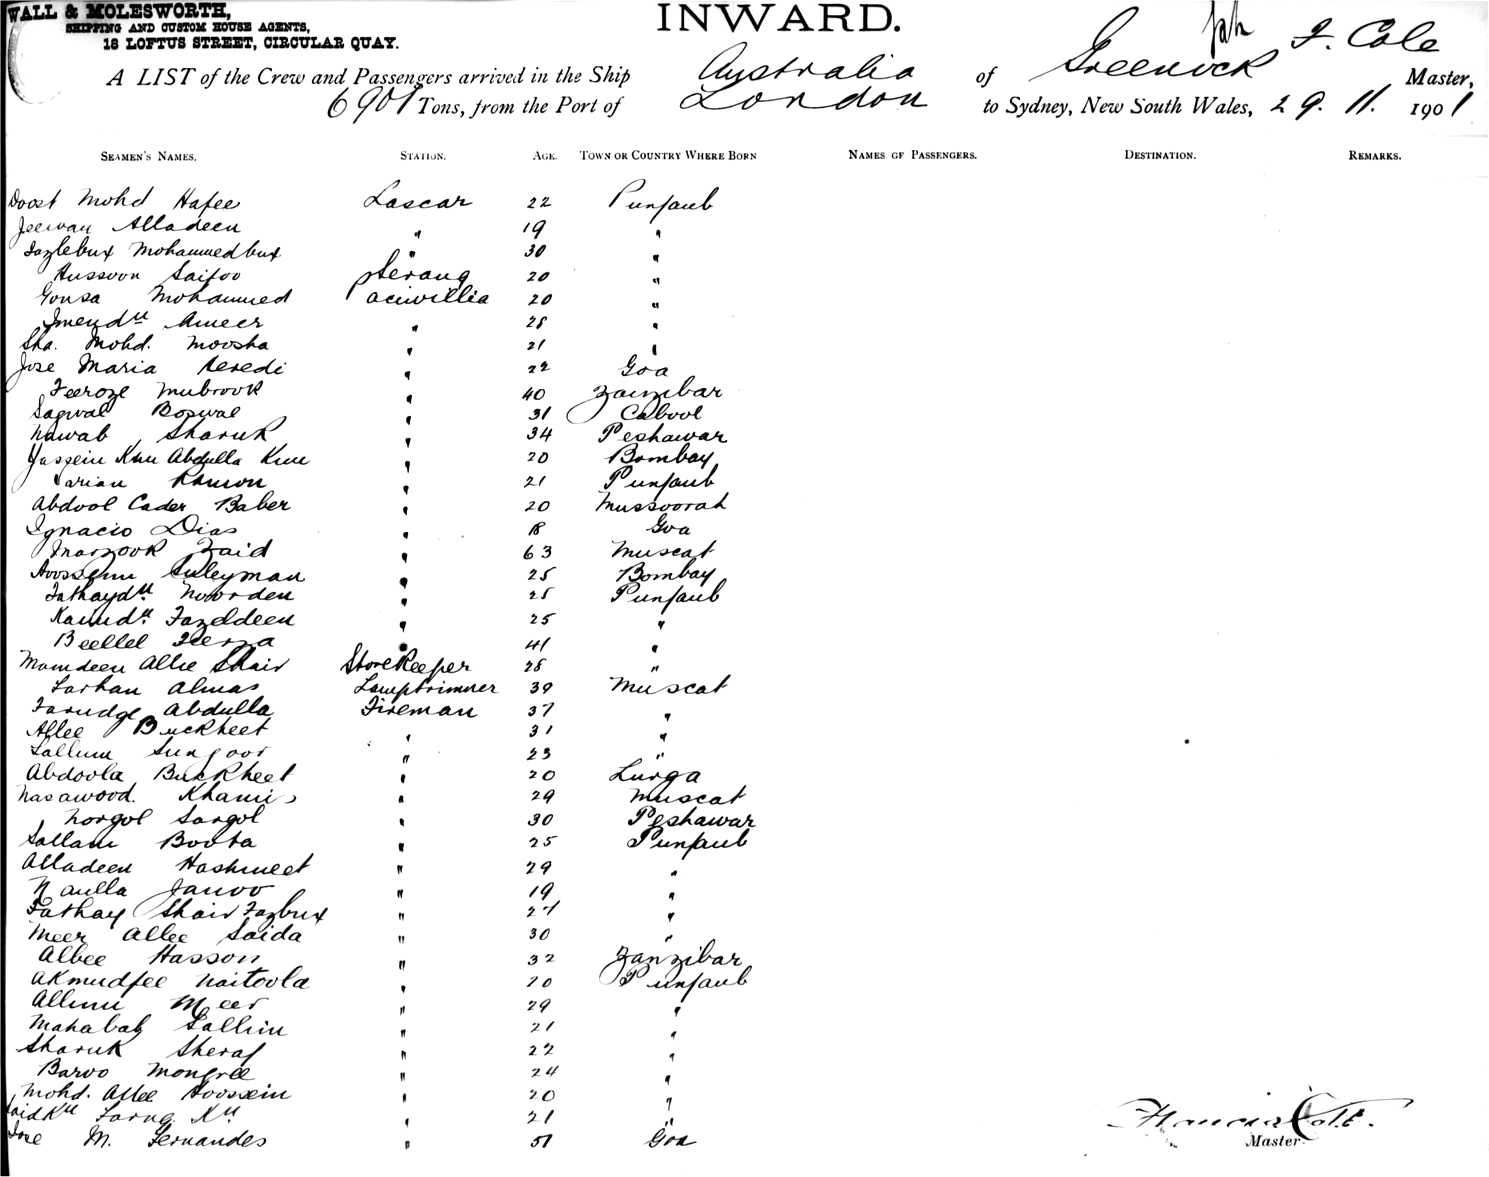 WALL & MOLESWORTH,
SHIPPING AND CUSTOM HOUSE AGENTS,
18 LOFTUS STREET, CIRCULAR QUAY.
INWARD.
A LIST of the Crew and Passengers arrived in the Ship Australia of Greenock F. Cole Master,
6901 Tons, from the Port of London to Sydney, New South Wales, 29. 11. 1901
SEAMEN'S NAMES. STATION. AGE. TOWN OR COUNTRY WHERE BORN NAMES OF PASSENGERS. DESTINATION. REMARKS.
Doost Mohd Hafee Lascar 22 Punjaub
Jeewan Alladeen " 19 "
Fazlebux Mohammedbux " 30 "
Hussoon Saifoo Serang 20 "
Gousa Mohammed 20 "
Ameer " 28 "
Sha. Mohd. Moosha " 21 "
Jose Maria " 22 Goa
Feeroze Mubrook " 40 Zanzibar
Sagwal Boswal " 31 Cabool
Nawab Sharuk " 34 Peshawar
Yassein Abdulla " 20 Bombay
" 21 Punjaub
Abdool Cader Baber " 20 Mussoorah
Ignacio Dias " 18 Goa
Marzook Zaid " 63 Muscat
Suleyman " 25 Bombay
Nowrden " 25 Punjaub
Fazldeen " 25 "
Beellel " 41 "
Mamdeen Allie Shair Storekeeper 28 "
Farhan Almas Lamptrimmer 39 Muscat
Farudge Abdulla Fireman 37 "
Allee Buckheet " 31 "
Sallum Sungoor " 23 "
Abdoola Buckheet " 20 Lurga
Nasawood. Khamis " 29 Muscat
Norgol Sargol " 30 Peshawar
Sallam Boota " 25 Punjaub
Alladeen Hashmeet " 29 "
Naulla Janoo " 19 "
Fathay Shair Fazbux " 27 "
Meer Allee Saida " 30 "
Albee Hasson " 32 Zanzibar
Akmudfee Naitoola " 20 Punjaub
Allum Meer " 29 "
Mahabab Sallim " 21 "
Sharuk Sheraf " 22 "
Baroo Mongree " 24 "
Mohd. Allee Hoossein " 20 "
" 21 "
Jose M. Fernandes " 51 Goa
Francis Cole.
Master.